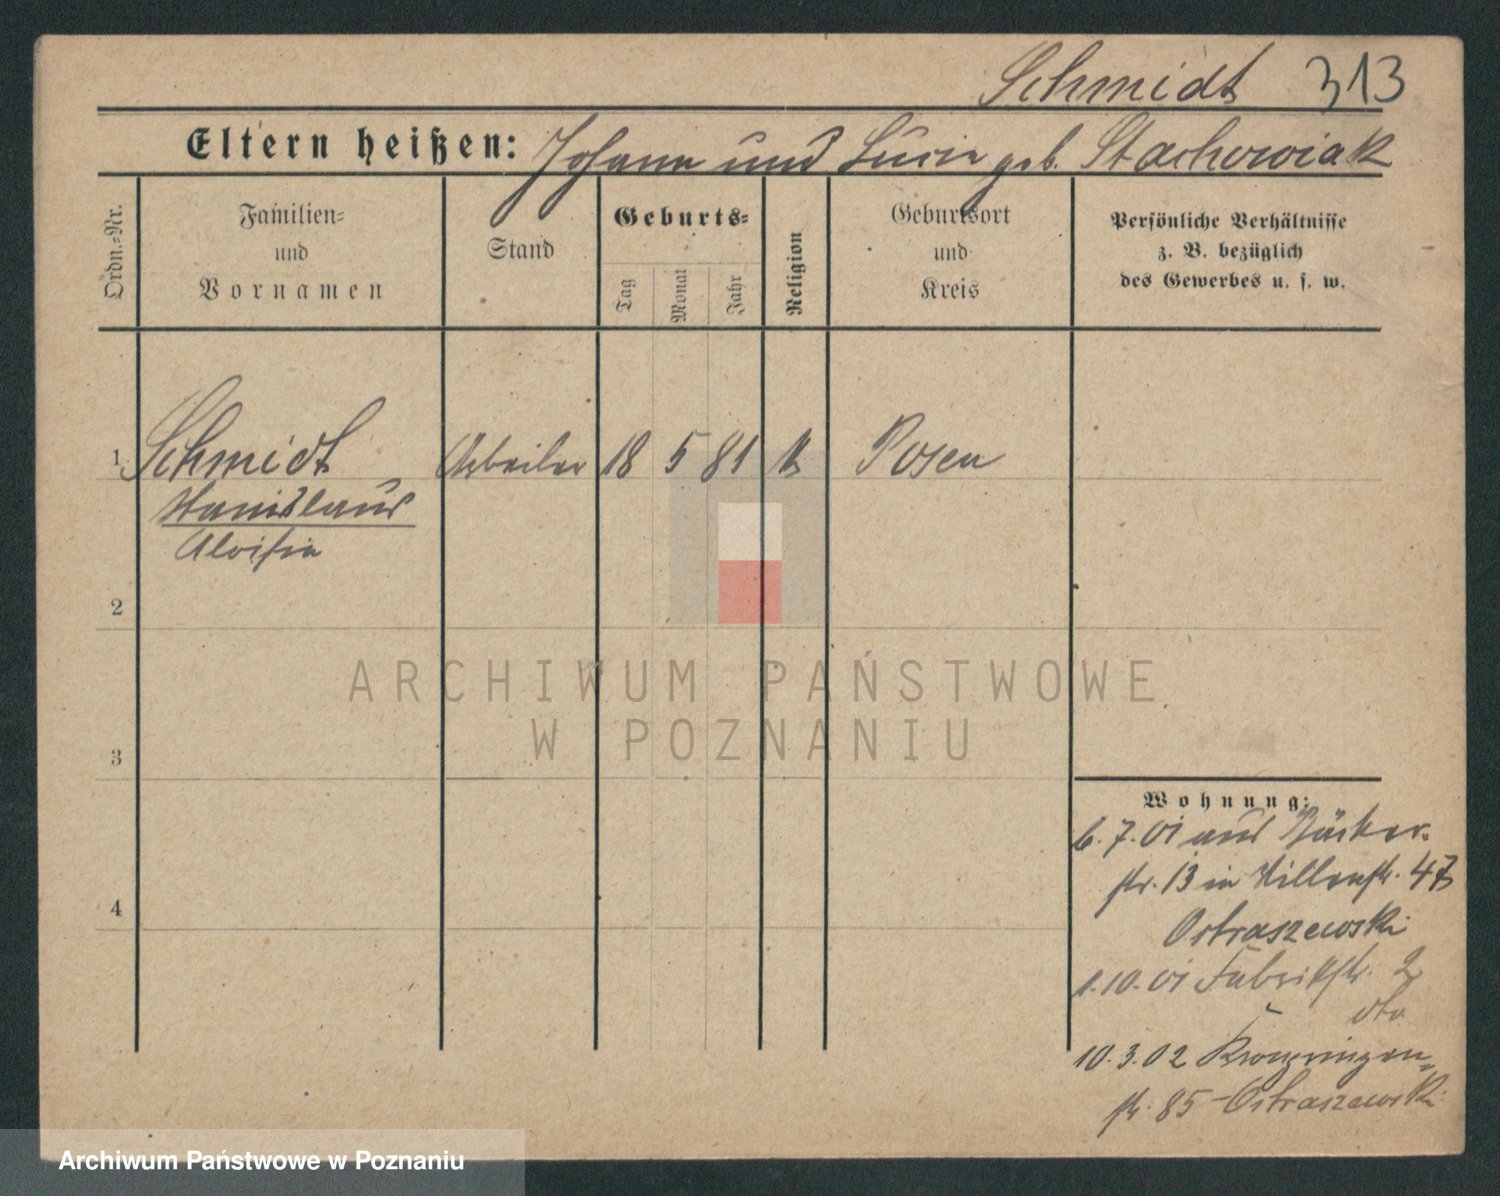 Schmidt 313
Eltern heißen: Johann und Lucie geb. Stachowiak
Ordn.=Nr.
Familien=
und
Vornamen
Stand
Geburts=
Tag
Monat
Jahr
Religion
Geburtsort
und
Kreis
Persönliche Verhältnisse
z. B. bezüglich
des Gewerbes u. s. w.
1 Schmidt Arbeiter 18 5 81 k Posen
Stanislaus
2
3
4
ARCHIWUM PAŃSTWOWE
W POZNANIU
Wohnung:
6.7.01 aus Bäcker-
str. 13 in Hillenstr. 47
Ostraszewski
1.10.01 Fabrikstr. 2
dto
10.3.02 Kronprinzen=
str. 85 - Ostraszewski
Archiwum Państwowe w Poznaniu